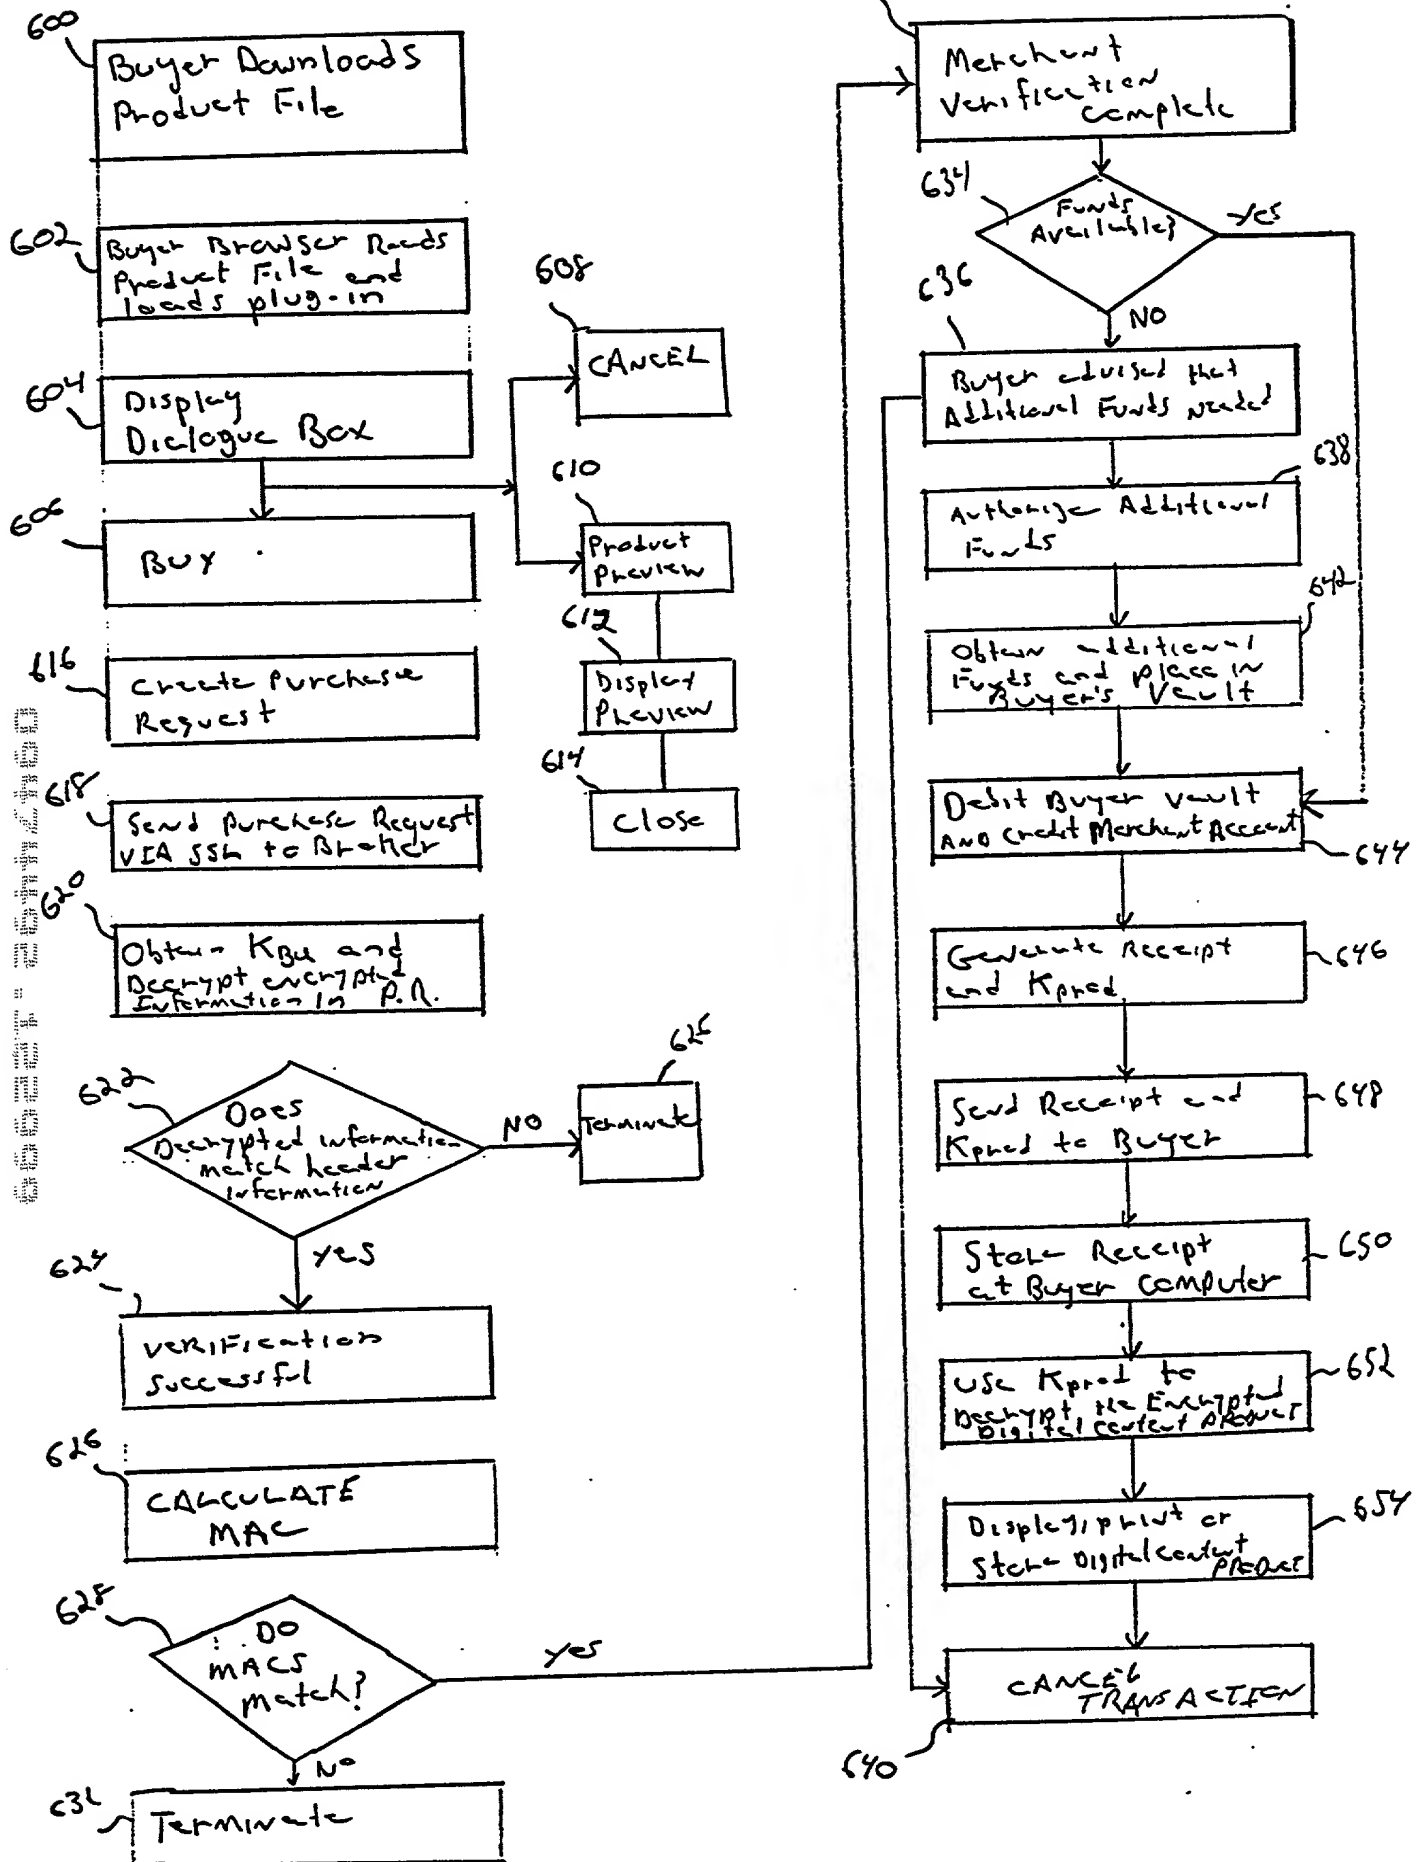 600
Buyer Downloads
Product File
602
Buyer Browser Reads
Product File and
loads plug-in
604
Display
Dialogue Box
606
BUY
608
CANCEL
610
Product
Preview
612
Display
Preview
614
Close
616
Create Purchase
Request
618
Send Purchase Request
VIA SSL to Broker
620
Obtain KBU and
Decrypt encrypted
Information In P.R.
622
Does
Decrypted information
match header
information
NO
Terminate
Yes
624
Verification
Successful
626
CALCULATE
MAC
628
DO
MACS
Match?
Yes
NO
Terminate
Merchant
Verification
Complete
634
Funds
Available?
Yes
NO
636
Buyer advised that
Additional Funds Needed
638
Authorize Additional
Funds
642
Obtain additional
Funds and place in
Buyer's Vault
Debit Buyer Vault
AND Credit Merchant Account
644
Generate Receipt
and Kprod
646
Send Receipt and
Kprod to Buyer
648
Store Receipt
at Buyer Computer
650
Use Kprod to
Decrypt the Encrypted
Digital Content PRODUCT
652
Display, print or
Store Digital Content
PRODUCT
654
CANCEL
TRANSACTION
640